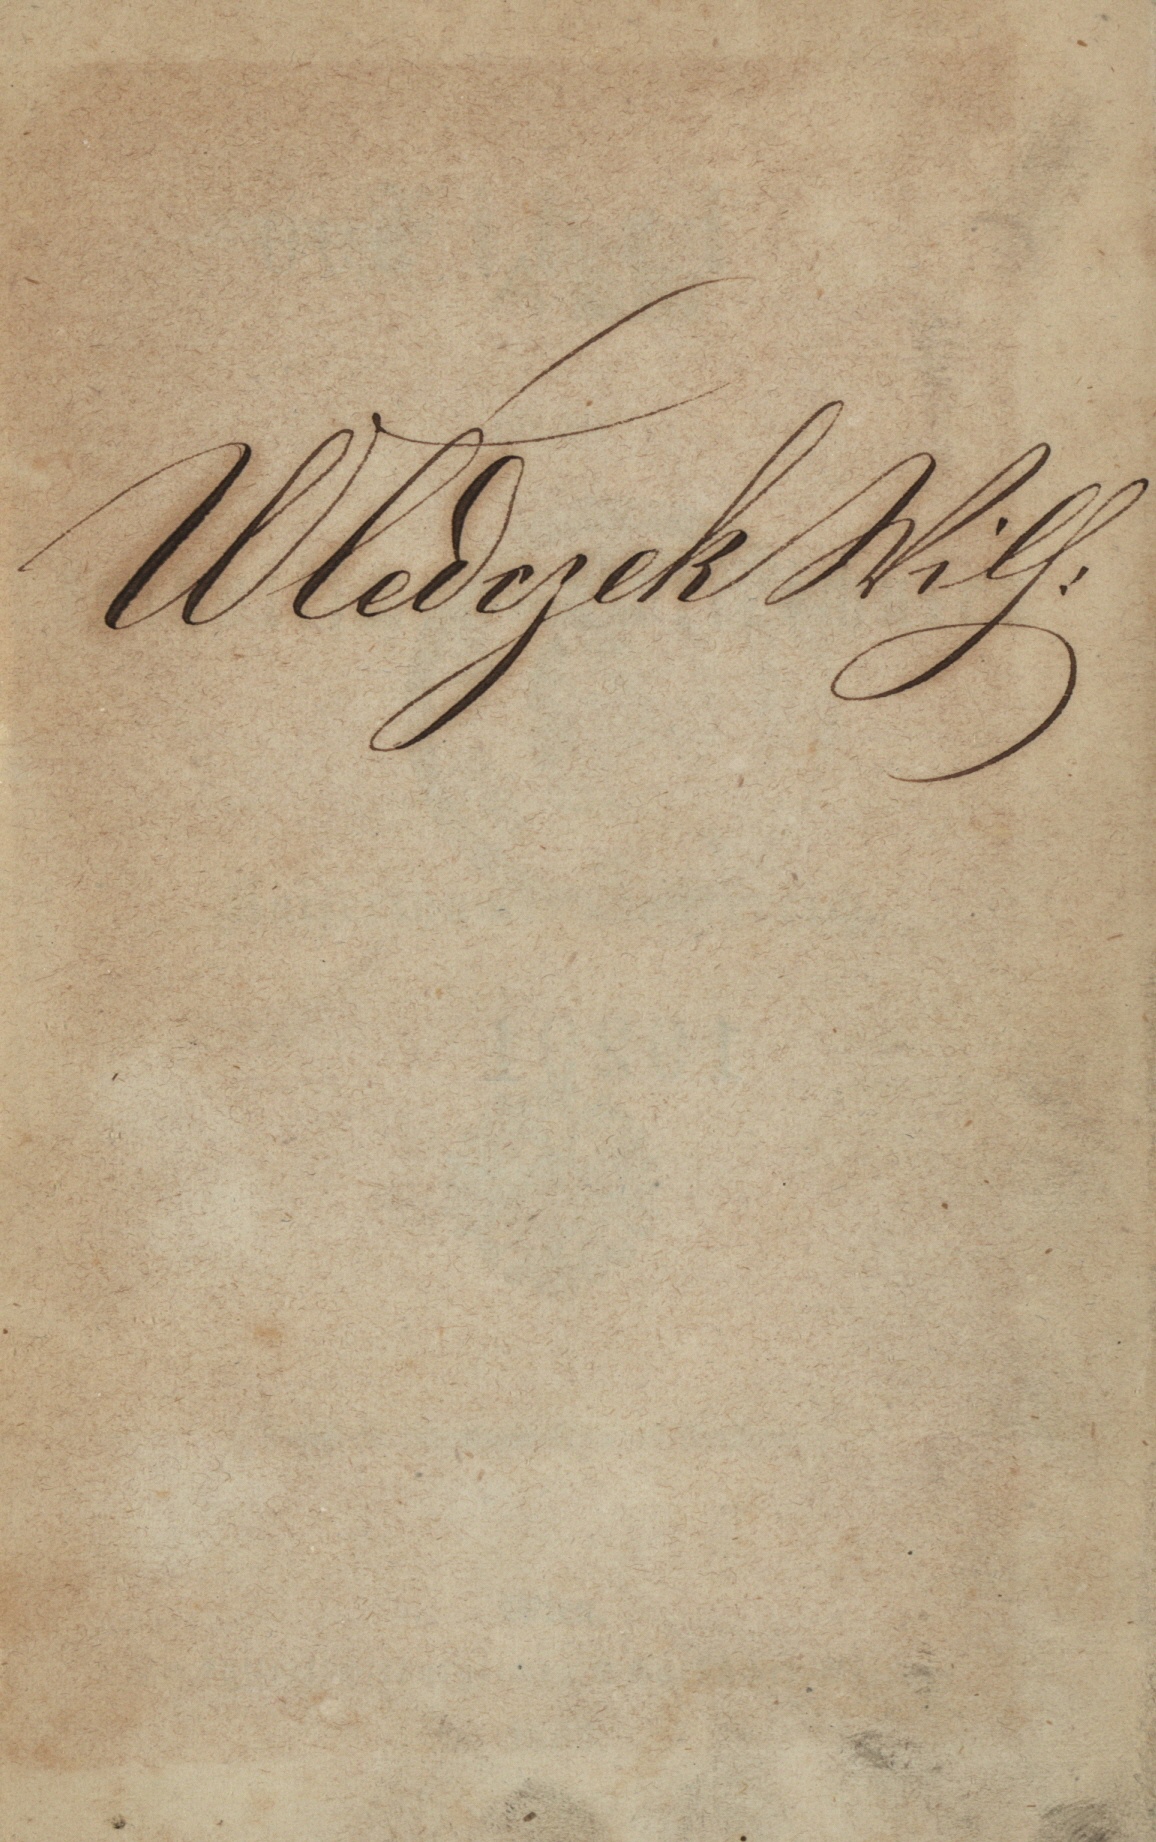 Wledczek Wilh: